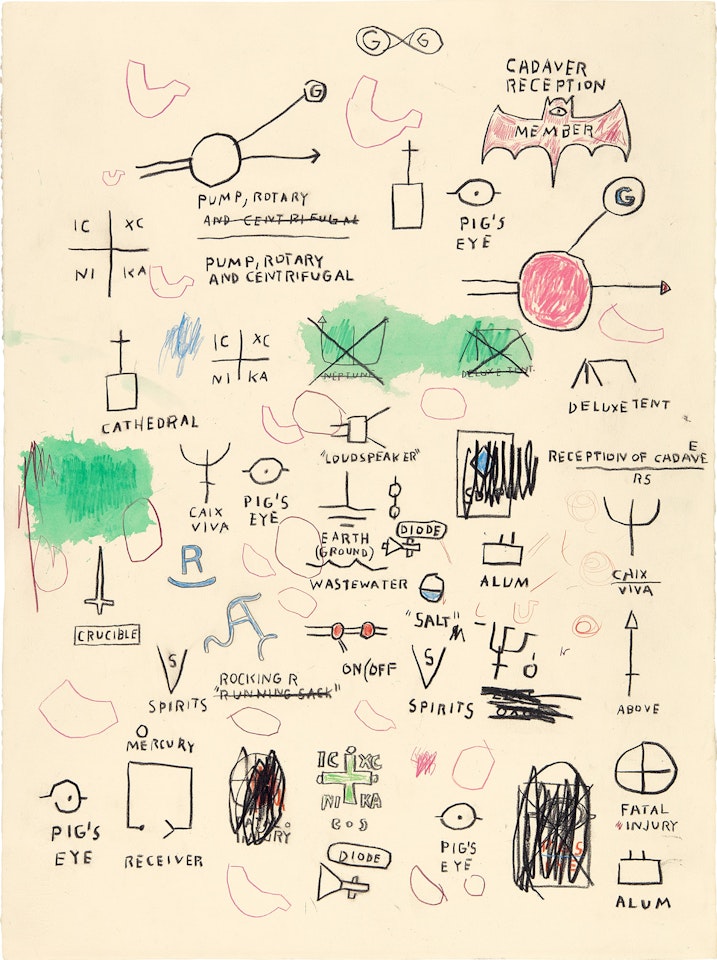 G G
CADAVER
RECEPTION
MEMBER
G
PUMP, ROTARY
AND CENTRIFUGAL
PUMP, ROTARY
AND CENTRIFUGAL
IC XC
NI KA
PIG'S
EYE
G
IC XC
NI KA
NEPTUNE
DELUXE TENT
DELUXE TENT
CATHEDRAL
"LOUDSPEAKER"
RECEPTION OF CADAVE
E
RS
CAIX
VIVA
PIG'S
EYE
EARTH
(GROUND)
DIODE
WASTEWATER
ALUM
CHIX
VIVA
R
"SALT"
CRUCIBLE
A
S
SPIRITS
ROCKING R
"RUNNING SACK"
ON/OFF
S
SPIRITS
ABOVE
MERCURY
PIG'S
EYE
RECEIVER
IC XC
NI KA
DIODE
PIG'S
EYE
FATAL
"INJURY
ALUM